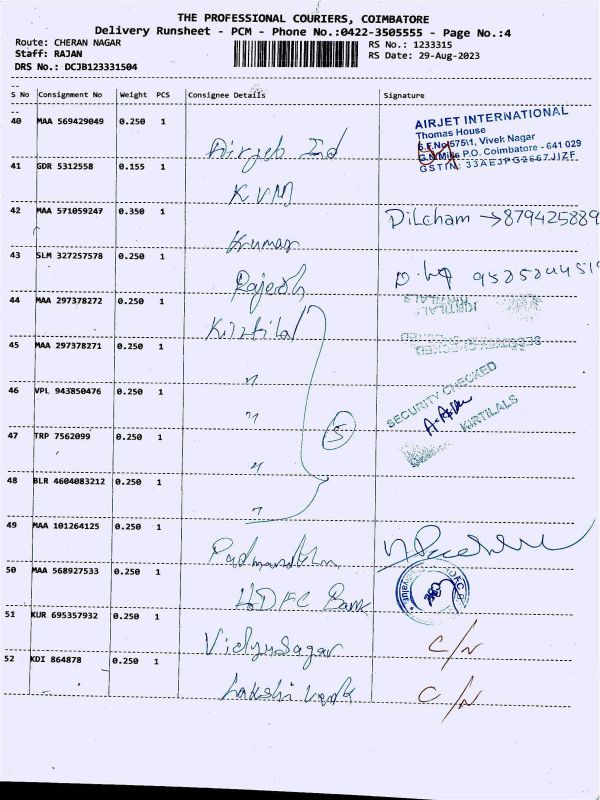 THE PROFESSIONAL COURIERS, COIMBATORE
Delivery Runsheet - PCM - Phone No.:0422-3505555 - Page No.:4
Route: CHERAN NAGAR RS No.: 1233315
Staff: RAJAN RS Date: 29-Aug-2023
DRS No.: DCJB123331504
S No Consignment No Weight PCS Consignee Details Signature
40 MAA 569429049 0.250 1
AIRJET INTERNATIONAL
Thomas House
S.F.No 575\1, Vivek Nagar
G.N.Mills P.O. Coimbatore - 641 029
GSTIN: 33AEJPG2667J1ZF
Airjeb Ind
41 GDR 5312558 0.155 1
KVM
42 MAA 571059247 0.350 1
Dilcham →879425889
Kumar
43 SLM 327257578 0.250 1
Rajesh
44 MAA 297378272 0.250 1
KIRTILALS
Kirtilal
SECURITY CHECKED
45 MAA 297378271 0.250 1
"
46 VPL 943850476 0.250 1
SECURITY CHECKED
KIRTILALS
"
5
47 TRP 7562099 0.250 1
"
48 BLR 4604083212 0.250 1
"
49 MAA 101264125 0.250 1
50 MAA 568927533 0.250 1
HDFC Bank
51 KUR 695357932 0.250 1
Vidyasagar C/N
52 KDI 864878 0.250 1
C/N